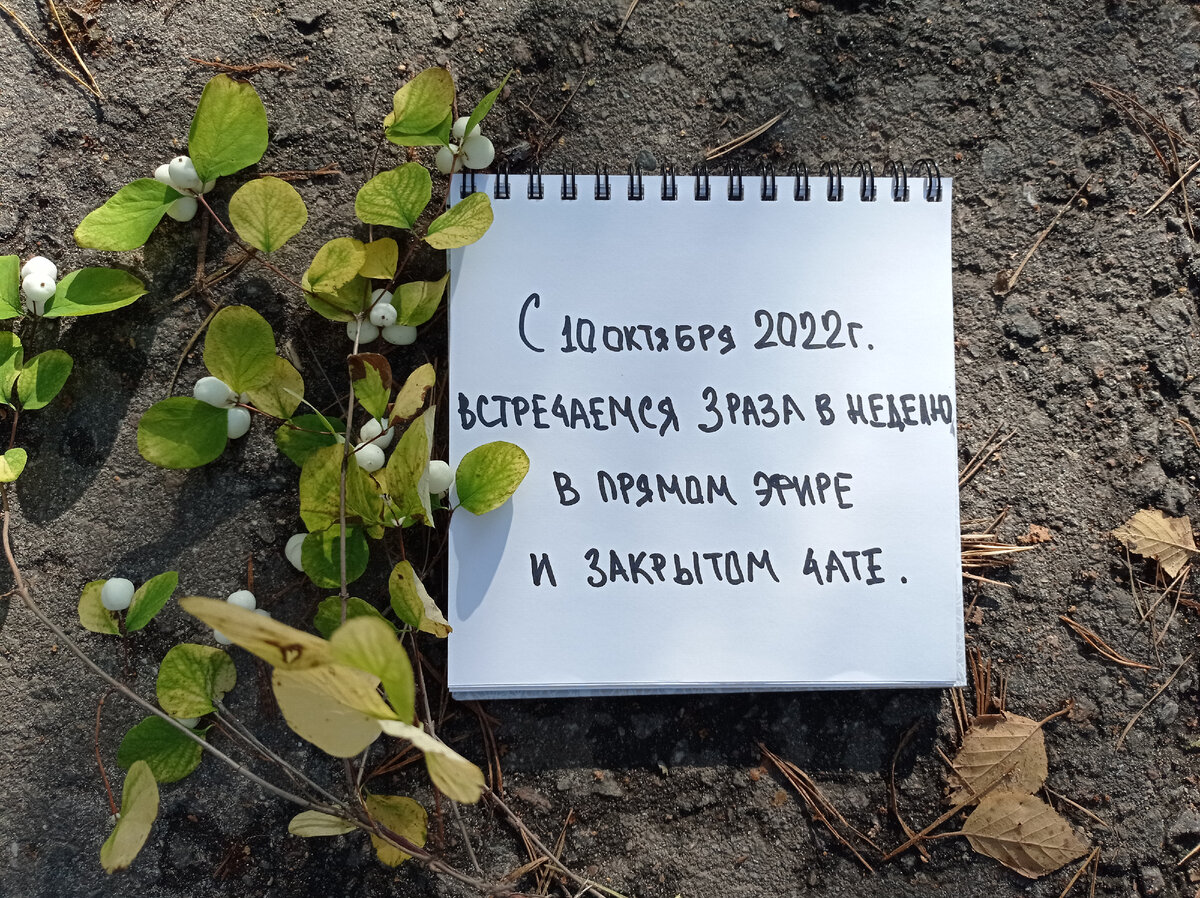 С 10 октября 2022г.
ВСТРЕЧАЕМСЯ 3 РАЗА В НЕДЕЛЮ
В ПРЯМОМ ЭФИРЕ
И ЗАКРЫТОМ ЧАТЕ.